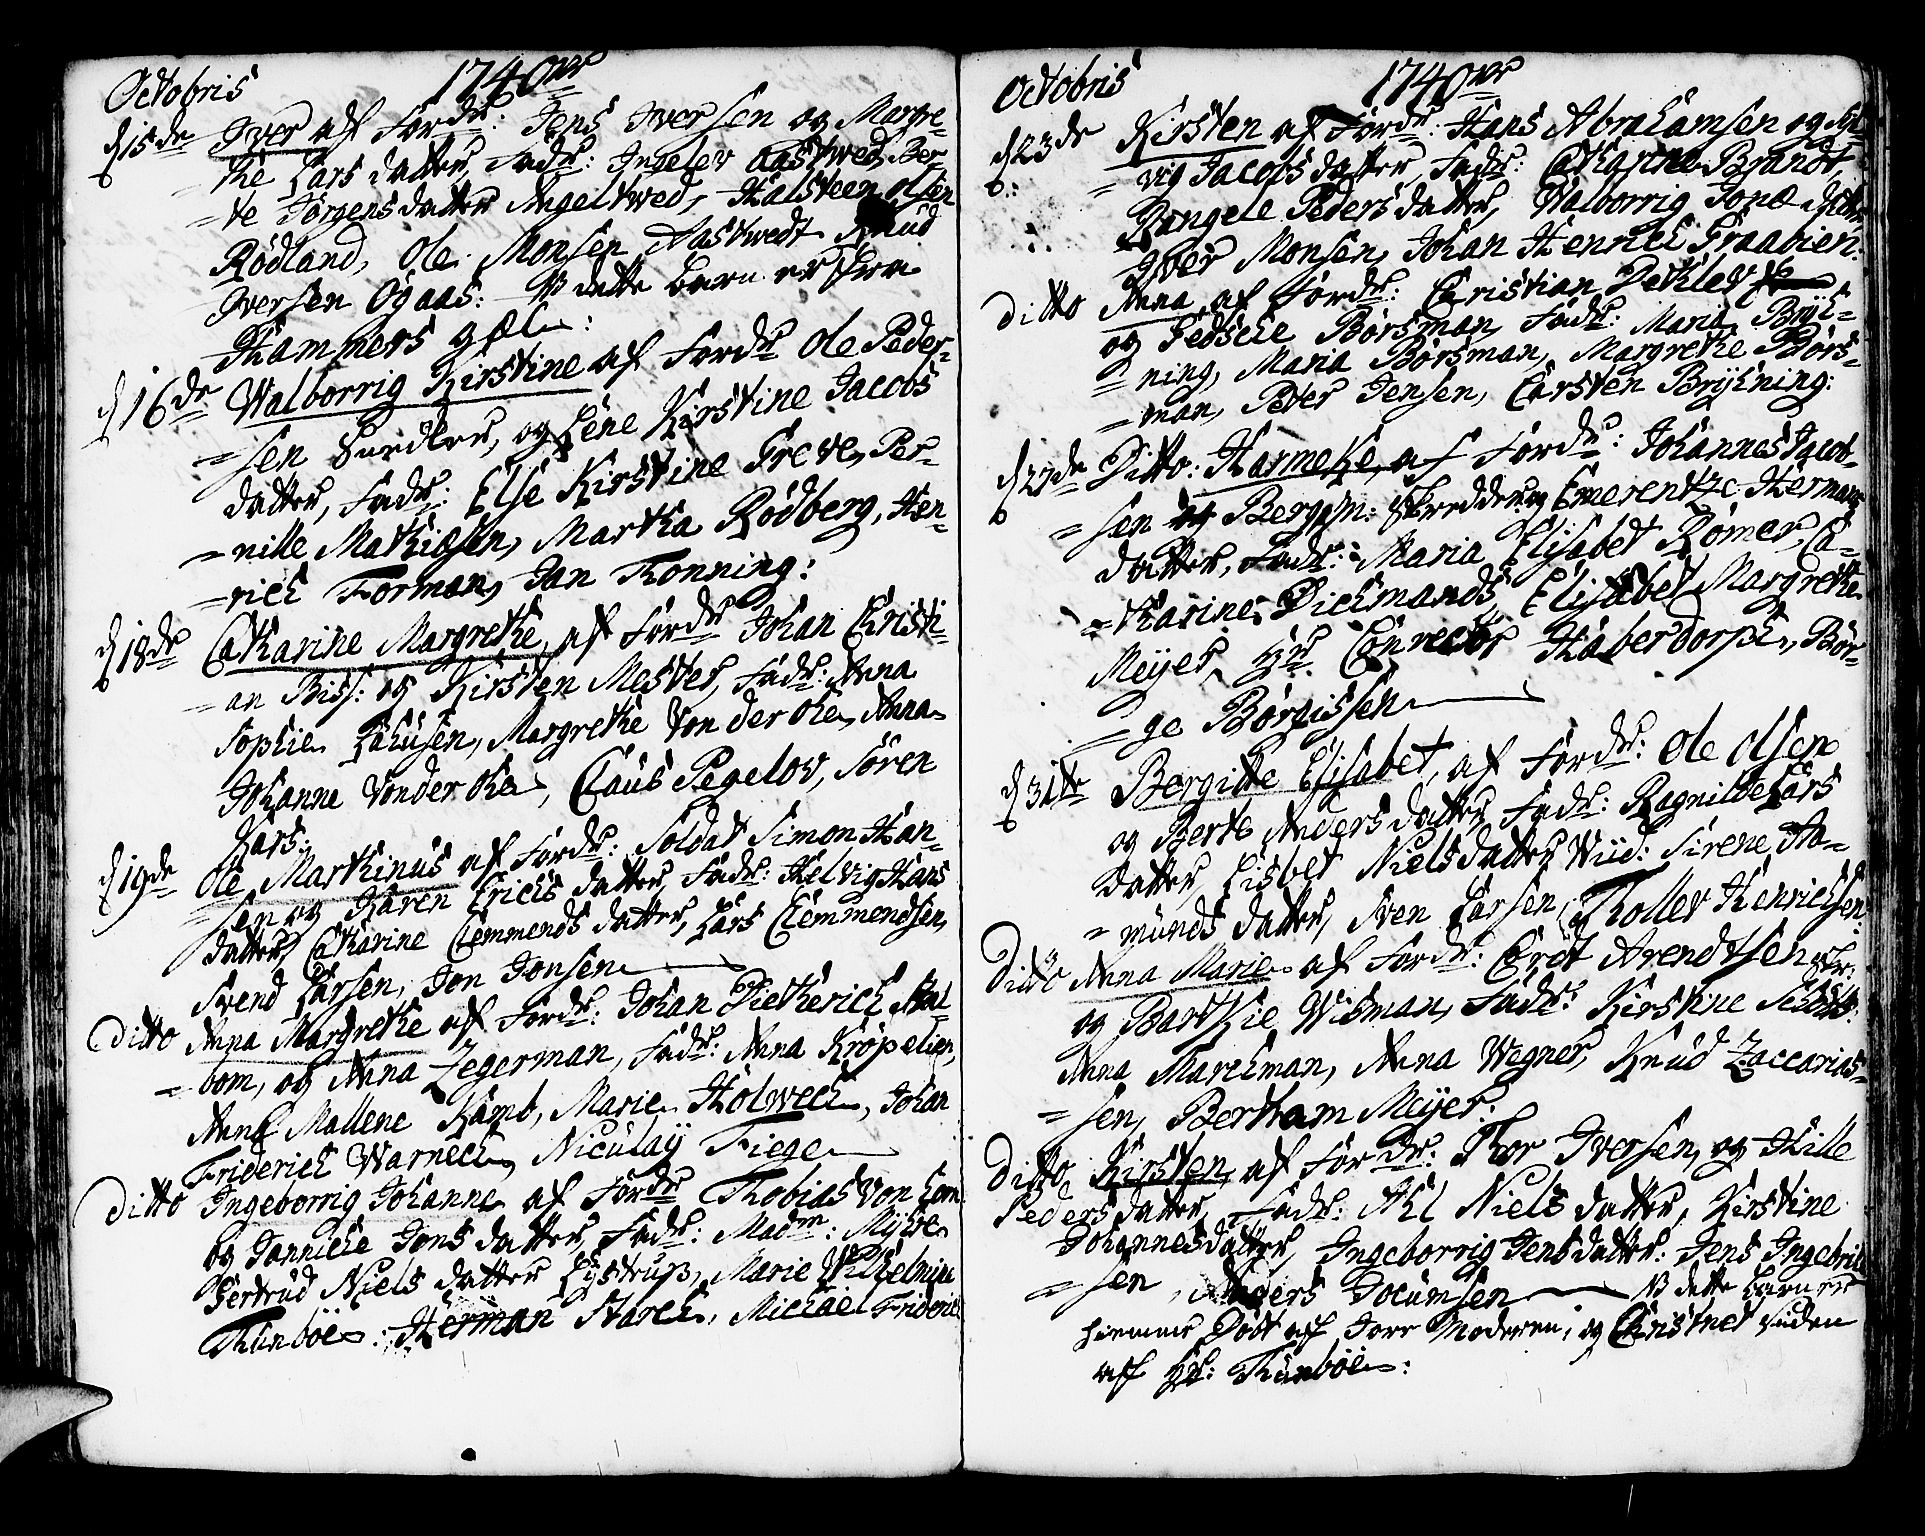 Octobris 1740
d 15de Iver af Fordr: Jens Iversen og Marte-
the Lars datter, Fadr: Ingelev Aastved, Ber-
te Jørgens datter Angeltwed, Halsteen olsen
Rødland, Ole Monsen Aastwedt Knud
Iversen Ogaas: NB dette Barn er fra
Hammers giæl:
d 16de Walborrig Kirstine af Fordr Ole Peder-
sen, og Lene Kirstine Jacobs
datter, Fadr: Else Kirstine Greve, Per-
nille Mathiesen, Martha Rødberg, Hen-
rich Forman, Jan Thonning:
d 18de Catharine Margrethe, af Fordr Johan Christi-
an Biss: og Kirsten Mester, Fadr: Anna
Sophie Lohusen, Margrethe Von der Ohe, Anna
Johanne Vonder Ohe, Claus Pegelov, Søren
Kars:
d 19de Ole Marthinus af Fordr: Soldat Simon Han-
sen og Karen Erichs datter, Fadr: Helvig Hans
datter, Catharine Clemmends datter, Lars Clemmendsen,
Svend Larsen, Jon Jonsen
Ditto Anna Margrethe af Fordr: Johan Dietherich Hal-
bom, og Anna Zegerman, Fadr: Anna Krøpelien,
Anne Mallene Kamb, Marie Holwech, Johan
Friderich Warnech, Niculaÿ Fiege
Ditto Ingeborrig Johanne af Fordr Thobias Von Lom
og Jannicke Jons datter, Fadr: Madm: Myhre
Gertrud Niels datter Lystrup, Marie Wilhelmine
Thünboe: Herman Starch, Michael Friderich
Octobris 1740
d 23de Kirsten af Fordr: Hans Abrahamsen og Sol-
vig Jacobs datter, Fadr: Catharine Brandt,
Rangele Peders datter, Walborrig Jonæ datter
Iver Monsen, Johan Henrich Graabien:
Ditto Anna af Fordr: Christian Dethlev
og Gedsche Børsman, Fadr: Maria Brÿh-
ning, Maria Børsman, Margrethe Børs-
man, Peter Jensen, Carsten Brÿhning:
d 27de Ditto: Harmeke, af Fordr: Johannes Jacob-
sen Bergsm: Skredder og Emerentze Hermans
datter, Fadr: Maria Elisabet Rømer, Ca-
tharine Dichmands, Elisabet Margrethe
Meÿer, Hr. Conrector Haberdorph, Bør-
ge Børgissen
d 31te Bergitte Elisabet, af Fordr: Ole Olsen
og Berte Anders datter, Fadr: Ragnilde Lars
datter, Lisbet Niels datter Wiid: Sirene Aa-
munds datter, Sven Larsen, Thollev Henrichsen:
Ditto Anna Marie af Fordr: Cordt Arendtsen
og Barthie Wisman, Fadr: Kirstine Schott:
Anna Marchman, Anna Wegner, Knud Zaccarias-
sen, Bertham Meÿer:
Ditto Kirsten, af Fordr: Thor Iversen, og Hille
Peders datter, Fadr: Ahl Niels datter, Kirstine
Johannes datter, Ingeborrig Jens datter: Jens Ingebrict
sen, Anders Jocumsen NB dette Barn er
hiemme Døbt af Jore Moderen, og Christnet siden
aff Hr: Thunboe: